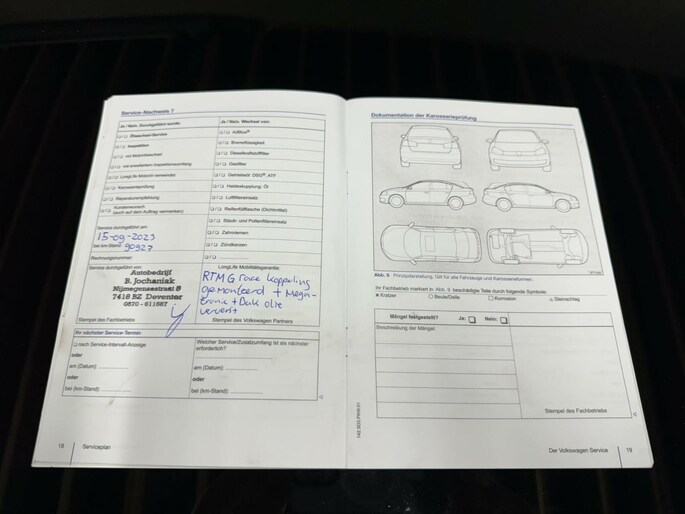 Service-Nachweis 7
Ja / Nein: Durchgeführt wurde:
Ja / Nein: Wechsel von:
❑ / ❑ Ölwechsel-Service
❑ / ❑ Inspektion
❑ / ❑ mit Motorölwechsel
❑ / ❑ mit erweitertem Inspektionsumfang
❑ / ❑ LongLife-Motoröl verwendet
❑ / ❑ Karosserieprüfung
❑ / ❑ Reparaturempfehlung
❑ / ❑ Kundenwunsch
(auch auf dem Auftrag vermerken)
❑ / ❑ AdBlue®
❑ / ❑ Bremsflüssigkeit
❑ / ❑ Dieselkraftstofffilter
❑ / ❑ Gasfilter
❑ / ❑ Getriebeöl: DSG®, ATF
❑ / ❑ Haldexkupplung: Öl
❑ / ❑ Luftfiltereinsatz
❑ / ❑ Reifenfüllflasche (Dichtmittel)
❑ / ❑ Staub- und Pollenfiltereinsatz
❑ / ❑ Zahnriemen
❑ / ❑ Zündkerzen
Service durchgeführt am:
15-09-2023
bei km-Stand: 90927
Rechnungsnummer:
Service durchgeführt von:
Autobedrijf
B. Jochaniak
Nijmegensestraat 8
7418 BZ Deventer
0570-611587
Stempel des Fachbetriebs
LongLife Mobilitätsgarantie:
RTMG race koppeling
gemonteerd +
olie
ververst
Stempel des Volkswagen Partners
Ihr nächster Service-Termin:
❑ nach Service-Intervall-Anzeige
oder
am (Datum):
oder
bei (km-Stand):
Welcher Service/Zusatzumfang ist als nächster
erforderlich?
am (Datum):
oder
bei (km-Stand):
18
Serviceplan
Dokumentation der Karosserieprüfung
Abb. 9 Prinzipdarstellung. Gilt für alle Fahrzeug- und Karosserieformen.
Ihr Fachbetrieb markiert in Abb. 9 beschädigte Teile durch folgende Symbole:
✕ Kratzer
○ Beule/Delle
□ Korrosion
△ Steinschlag
Mängel festgestellt? Ja: ❑ Nein: ❑
Beschreibung der Mängel:
Stempel des Fachbetriebs
Der Volkswagen Service
19